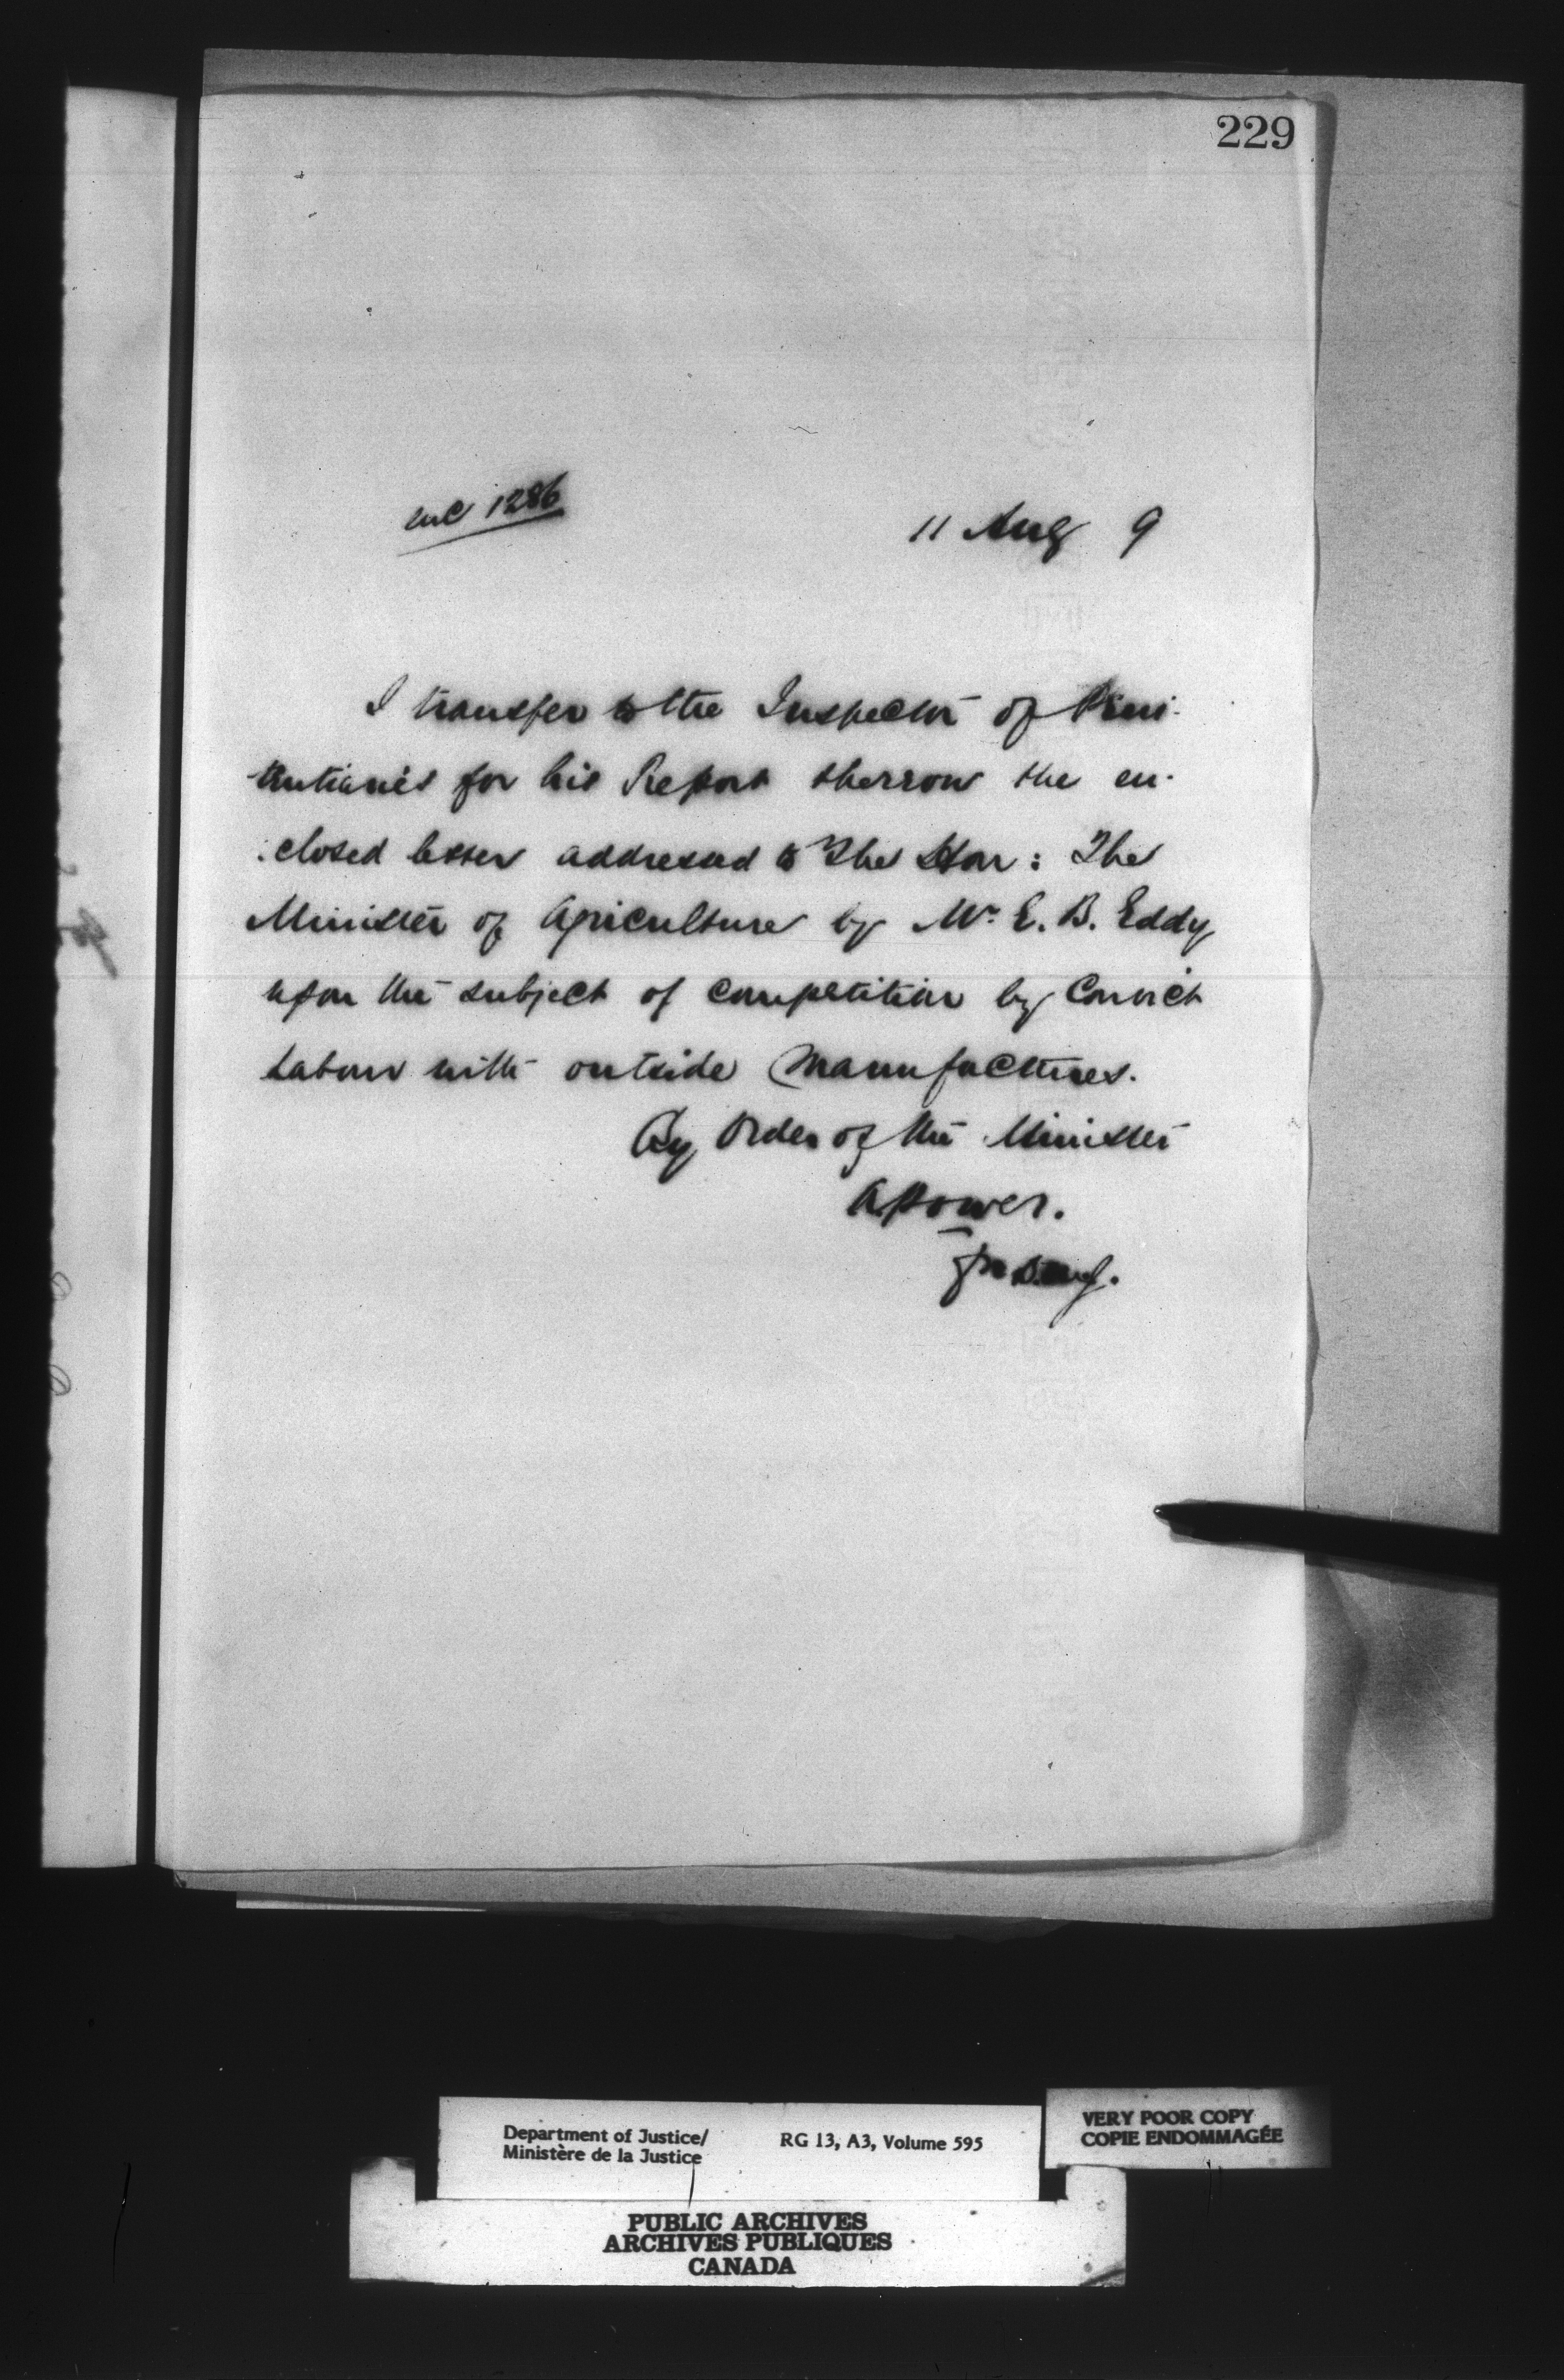 229
enc 1286
11 Aug 9
I transfer to the Inspector of Peni-
tentiaries for his Report thereon the en-
closed letter addressed to The Hon: The
Minister of Agriculture by Mr. E. B. Eddy
upon the subject of competition by Convict
Labour with outside Manufactures.
By Order of the Minister
A Power.
for
VERY POOR COPY
COPIE ENDOMMAGÉE
Department of Justice/ RG 13, A3, Volume 595
Ministère de la Justice
PUBLIC ARCHIVES
ARCHIVES PUBLIQUES
CANADA